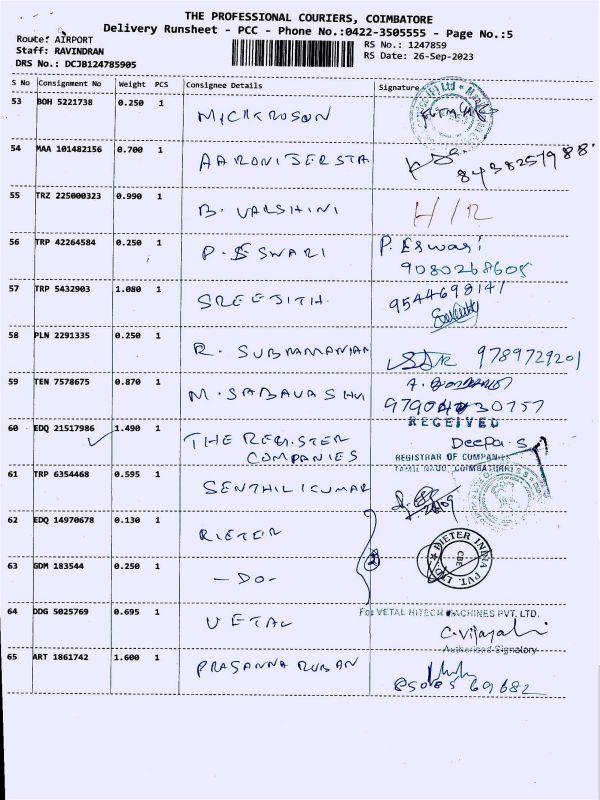 THE PROFESSIONAL COURIERS, COIMBATORE
Delivery Runsheet - PCC - Phone No.:0422-3505555 - Page No.:5
Route: AIRPORT
RS No.: 1247859
Staff: RAVINDRAN
RS Date: 26-Sep-2023
DRS No.: DCJB124785905
S No Consignment No Weight PCS Consignee Details Signature
53 BOH 5221738 0.250 1 MICKROSON
54 MAA 101482156 0.700 1 AARONIJERSTA 8438257988.
55 TRZ 225000323 0.990 1 B. VARSHINI H/R
56 TRP 42264584 0.250 1 P. ESWARI P. Eswari
9080268605
57 TRP 5432903 1.080 1 SREEJITH. 9544698141
58 PLN 2291335 0.250 1 R. SUBRAMANIAN 9789729201
59 TEN 7578675 0.870 1 M. SABAVASHVI
9790430757
60 EDQ 21517986 1.490 1 THE REGISTER COMPANIES RECEIVED
Deepa. S
REGISTRAR OF COMPANIES
TAMIL NADU, COIMBATORE
61 TRP 6354468 0.595 1 SENTHILKUMAR 26/09
62 EDQ 14970678 0.130 1 RIETER
RIETER INDIA PVT. LTD. CBE
63 GDM 183544 0.250 1 -DO- 2
64 DDG 5025769 0.695 1 VETAL For VETAL HITECH MACHINES PVT. LTD.
C. Vijayalai
Authorised Signatory
65 ART 1861742 1.600 1 PRASANNA RUBAN
85085 69682